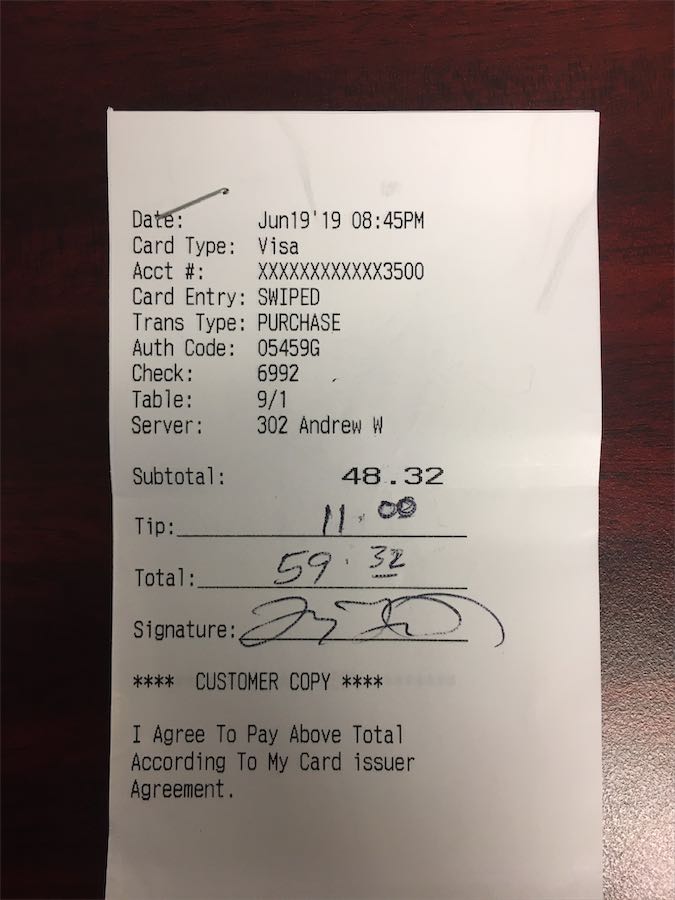 Date: Jun19'19 08:45PM
Card Type: Visa
Acct #: XXXXXXXXXXXX3500
Card Entry: SWIPED
Trans Type: PURCHASE
Auth Code: 05459G
Check: 6992
Table: 9/1
Server: 302 Andrew W
Subtotal: 48.32
Tip: 11.00
Total: 59.32
Signature:
**** CUSTOMER COPY ****
I Agree To Pay Above Total
According To My Card issuer
Agreement.